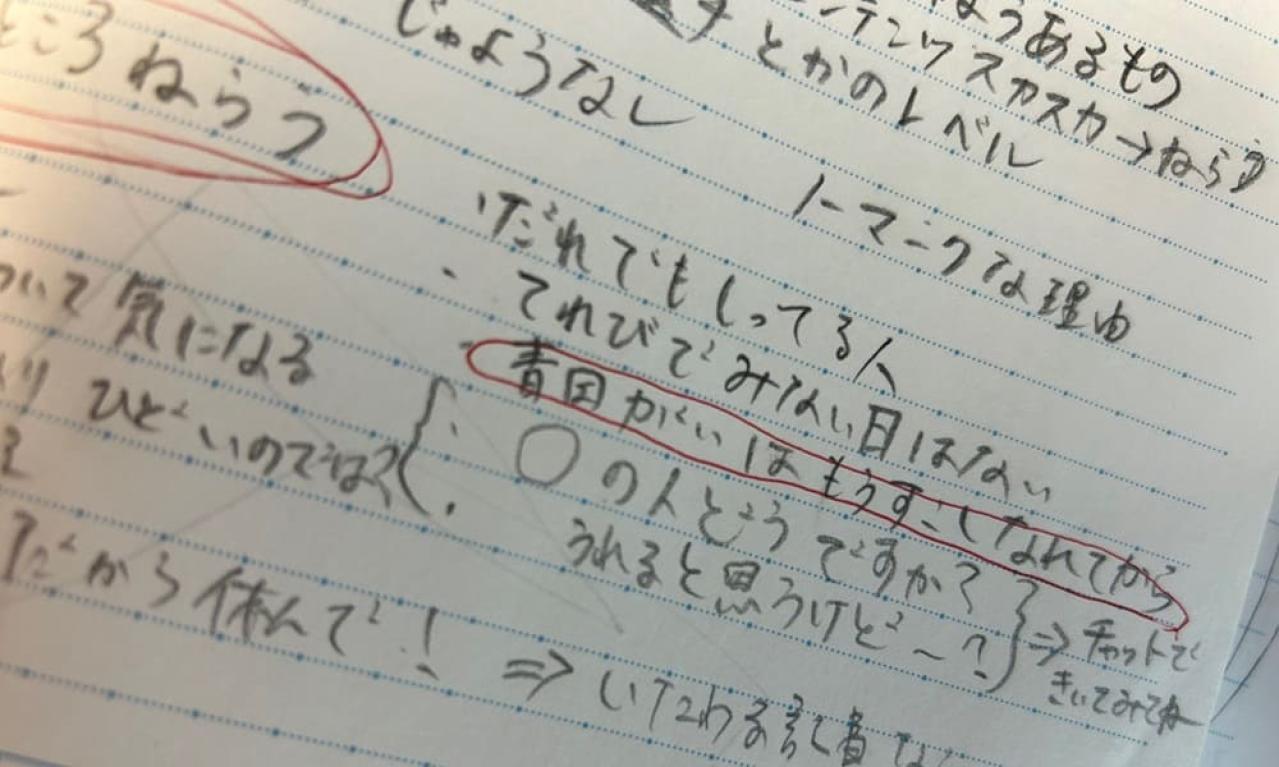 ころねらう
じゅようなし
ようあるもの
テンツスカスカ→ねらう
とかのレベル
トーマークな理由
・だれでもしってる人
・てれびでみない日はない
・青因がいはもうすこしなれてから
・○の人どうですか?
・うれると思うけど~?
⇒チャットで
きいてみてね
ついて気になる
ひどいのでは?
だから休んで!
⇒いたわる記者な